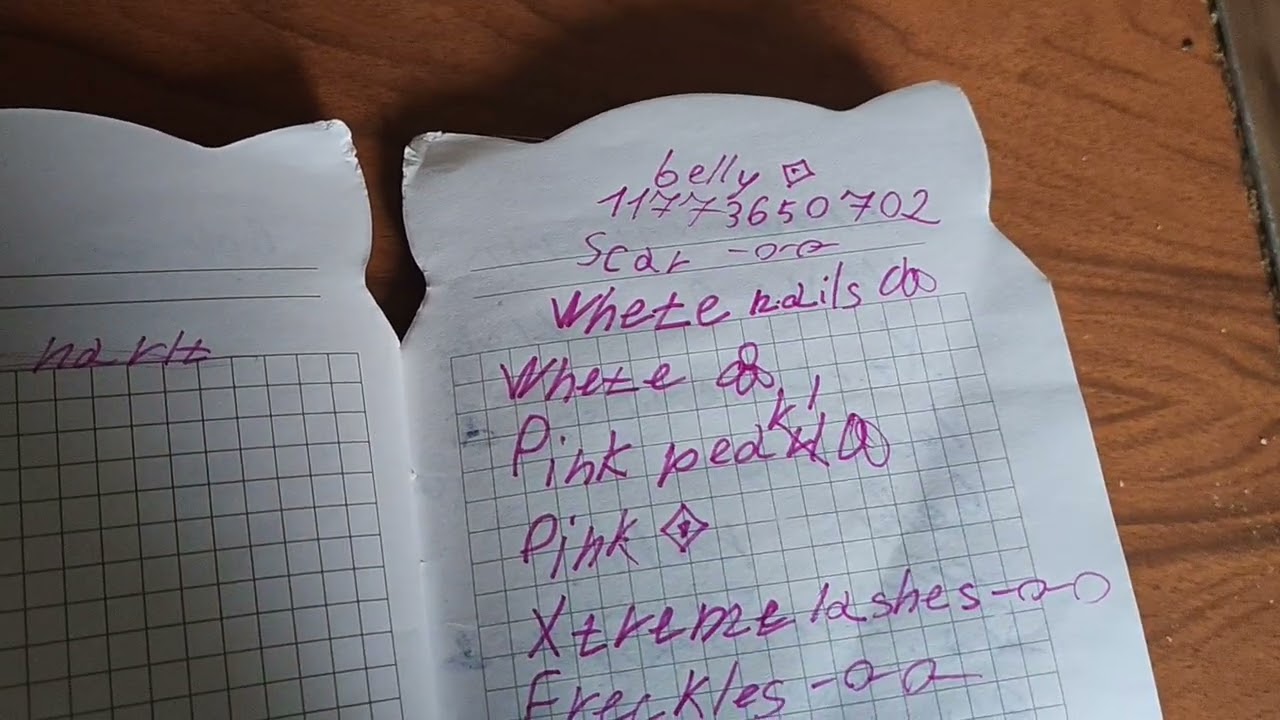 hart
belly
11773650702
Scar
Where nails
Where
Pink peak
Pink
Xtreme lashes
Freckles